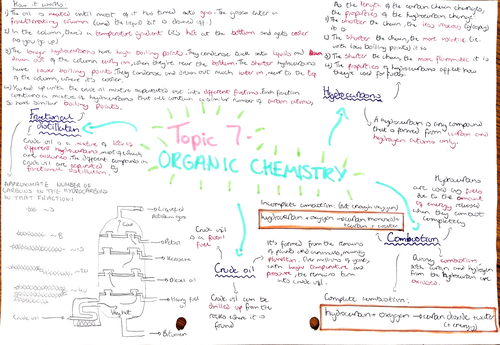 How it works:
1) The oil is heated until most of it has turned into gas. The gases enter a
fractionating column (and the liquid bit is drained off.)
2) In the column, there's a temperature gradient (it's hot at the bottom and gets cooler
as you go up)
3) The longer hydrocarbons have high boiling points. They condense back into liquids and
drain out of the column early on, when they're near the bottom. The shorter hydrocarbons
have lower boiling points. They condense and drain out much later on, near to the top
of the column, where it's cooler.
4) You end up with the crude oil mixture separated out into different fractions. Each fraction
contains a mixture of hydrocarbons that all contain a similar number of carbon atoms,
so have similar boiling points.
Fractional
distillation
Crude oil is a mixture of lots of
different hydrocarbons, most of which
are alkanes. The different compounds in
crude oil are separated by
fractional distillation.
APPROXIMATE NUMBER OF
CARBONS IN THE HYDROCARBONS
IN THAT FRACTION:
~3
~8
~15
~20
~40
Liquefied
petroleum gas
Cool
Petrol
Kerosene
Diesel oil
Heavy fuel
oil
Very hot
Crude
oil
Bitumen
Topic 7-
ORGANIC CHEMISTRY
As the length of the carbon chain changes,
the properties of the hydrocarbon change.
1) The shorter the chain, the less viscous (gloopy)
it is
2) The shorter the chain, the more volatile (i.e.
with low boiling points) it is
3) The shorter the chain, the more flammable it is
4) The properties of hydrocarbons affect how
they're used for fuels.
Hydrocarbons
A hydrocarbon is any compound
that is formed from carbon and
hydrogen atoms only.
Hydrocarbons
are used as fuels
due to the amount
of energy released
when they combust
completely
Combustion
During combustion,
both carbon and hydrogen
from the hydrocarbon are
oxidised.
Incomplete combustion: (not enough oxygen)
hydrocarbon + oxygen → carbon monoxide
+ carbon + water
Complete combustion:
hydrocarbon + oxygen → carbon dioxide + water
(+ energy)
Crude oil
is a fossil
fuel
Crude oil
It's formed from the remains
of plants and animals, mainly
plankton. Over millions of years,
with high temperature and
pressure, the remains turn
into crude oil.
Crude oil can be
drilled up from the
rocks where it is
found